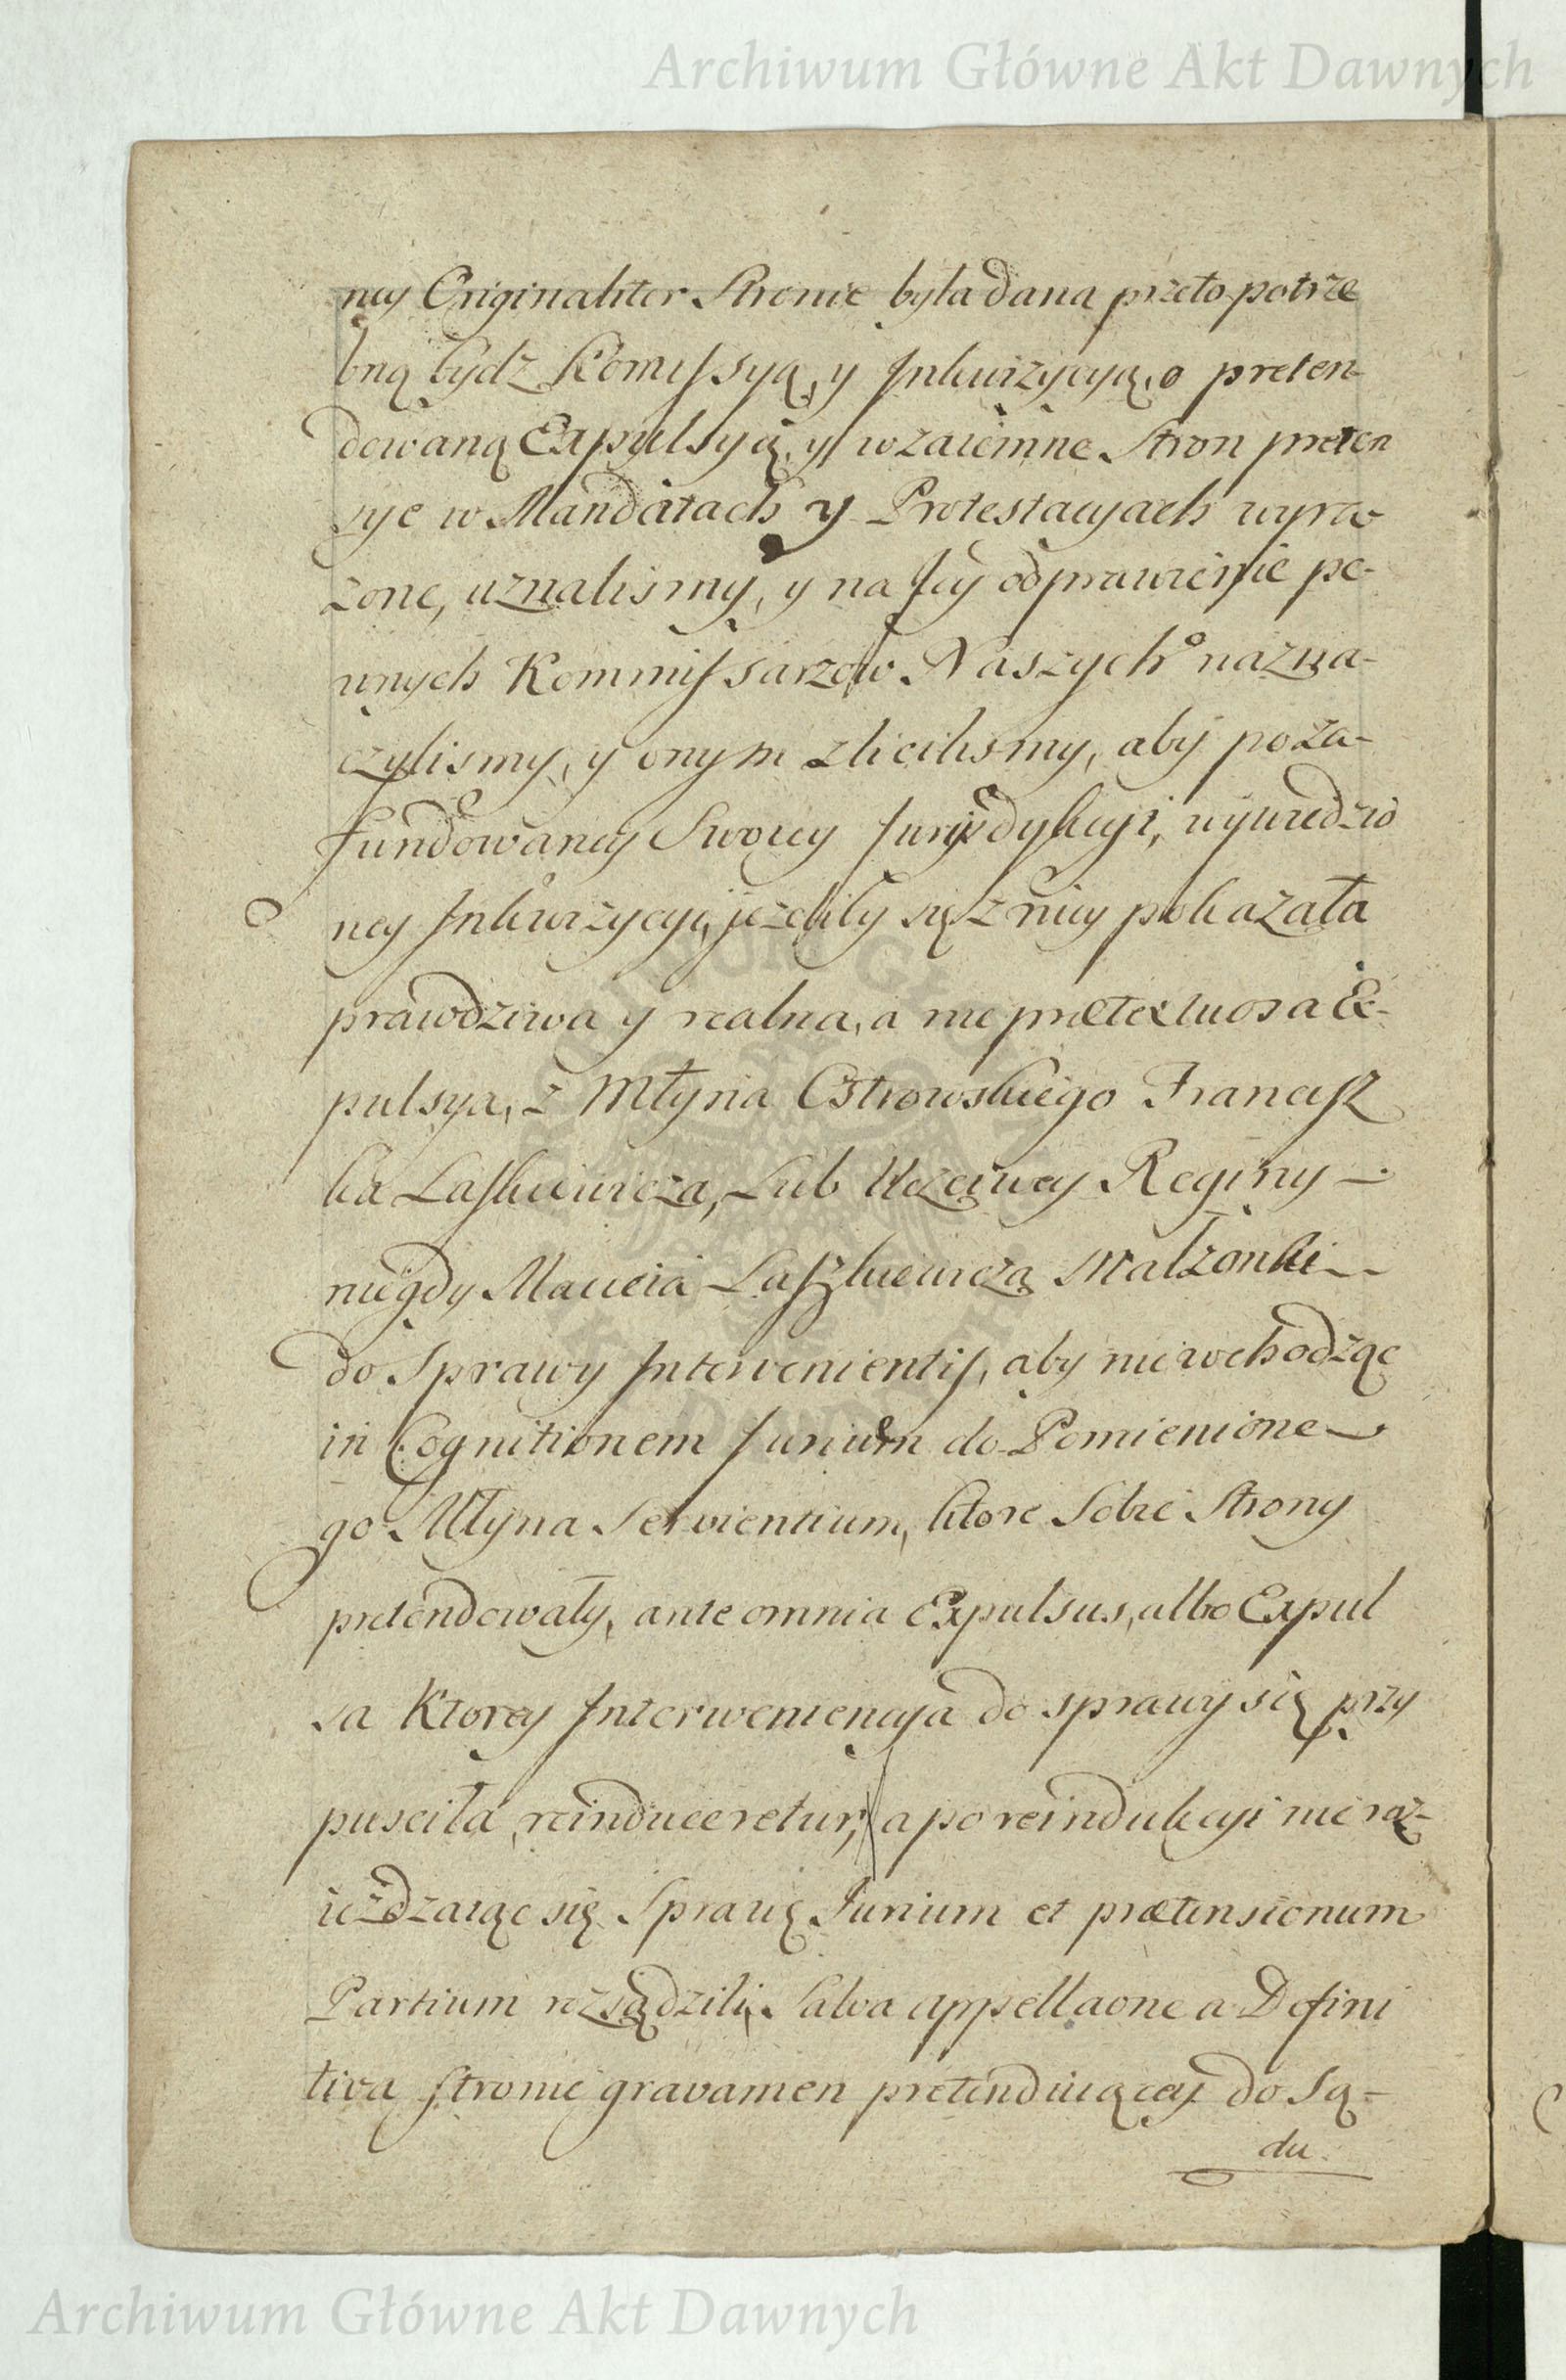 Archiwum Główne Akt Dawnych
ney Originaliter Stronie była dana przeto potrze
bną bydz Komissyą, y Inkwizycyą, o preten-
dowaną Expulsyą, y wzaiemne Stron preten
sye w Mandatach y Protestacyach wyra
zone, uznalismy, y na Jey odprawienie pe-
wnych Kommissarzow Naszych nazna-
czylismy, y onym zlecilismy, aby po za-
fundowaney Swoiey Jurysdykcyi, wywiedzio
ney Inkwizycyi, jezeliby się z niey pokazała
prawdziwa y realna, a nie prætextuosa Ex-
pulsya, z Młyna Ostrowskiego Francisz
ka Laskiewicza, Lub Uczciwey Reginy –
niegdy Macieia Laszkiewicza Małżonki –
do Sprawy Intervenientis, aby niewchodząc
in Cognitionem Jurium do Pomienione –
go Młyna Servientium, ktore Sobie Strony
pretendowały, ante omnia Expulsus, albo Expul
sa Ktorey Interweniencya do sprawy się przy
pusciła, reinduceretur, a po reindukcyi nie roz-
ieżdzaiąc się Sprawę Jurium et prætensionum
Partium rozsądzili, Salva appellaone a Defini
tiva stronie gravamen pretenduiącey do Są-
du
Archiwum Główne Akt Dawnych